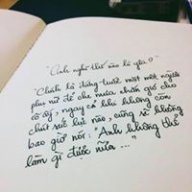 "Anh nghĩ thế nào là yêu?"
"Chắc là đứng trước mặt một người
phụ nữ để che mưa chắn gió cho
cô ấy, ngay cả khi không còn
chút sức lực nào, cũng sẽ không
bao giờ nói: "Anh không thể
làm gì được nữa...